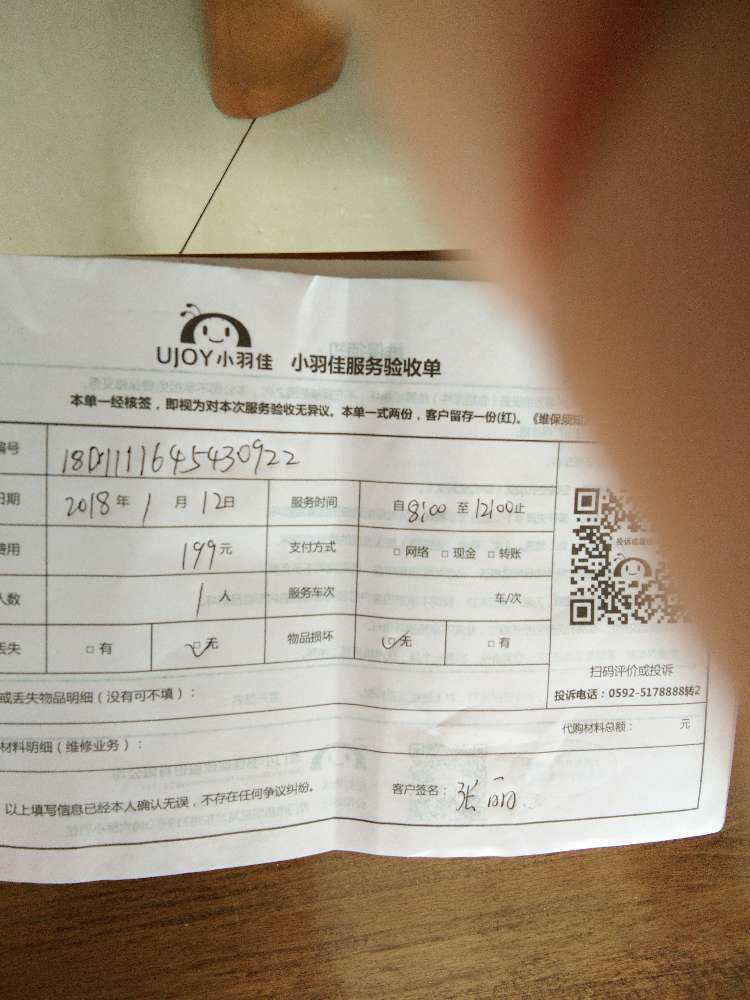 UJOY小羽佳 小羽佳服务验收单
本单一经核签，即视为对本次服务验收无异议。本单一式两份，客户留存一份(红)。《维保须知
编号 18D1111645430922
日期 2018年 1 月 12日 服务时间 自8:00至12:00止
费用 199元 支付方式 □ 网络 □ 现金 □ 转账
人数 1 人 服务车次 车/次
丢失 □ 有 □ 无 物品损坏 □ 无 □ 有
扫码评价或投诉
投诉电话：0592-5178888转2
或丢失物品明细（没有可不填）：
代购材料总额： 元
材料明细（维修业务）：
以上填写信息已经本人确认无误，不存在任何争议纠纷。 客户签名：张丽